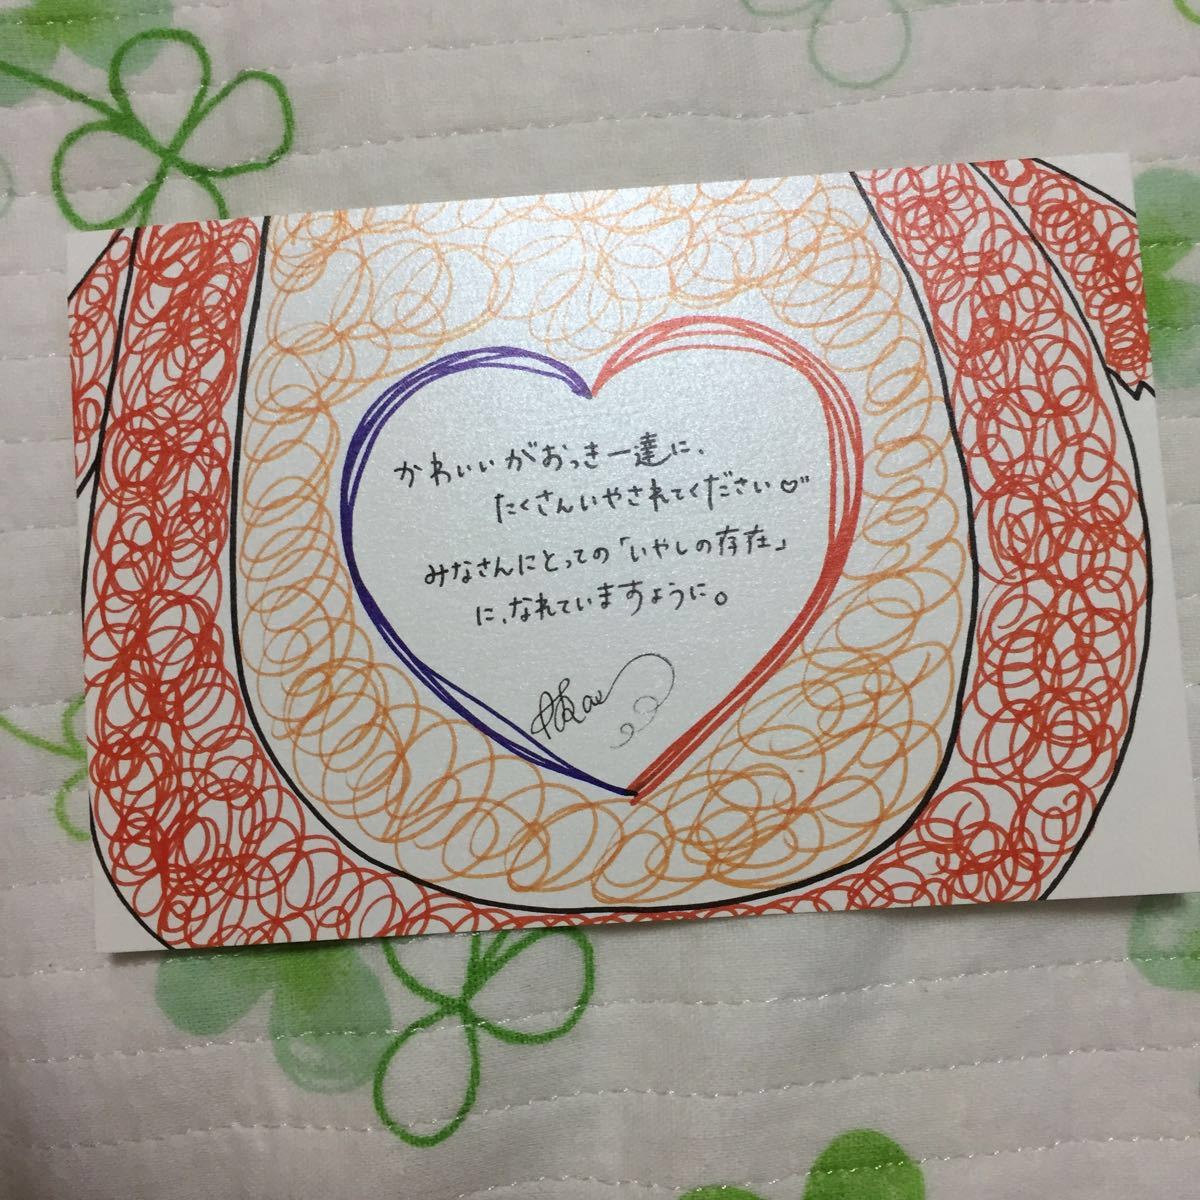 かわいいがおっきー達に、
たくさんいやされてください♡
みなさんにとっての「いやしの存在」
に、なれていますように。